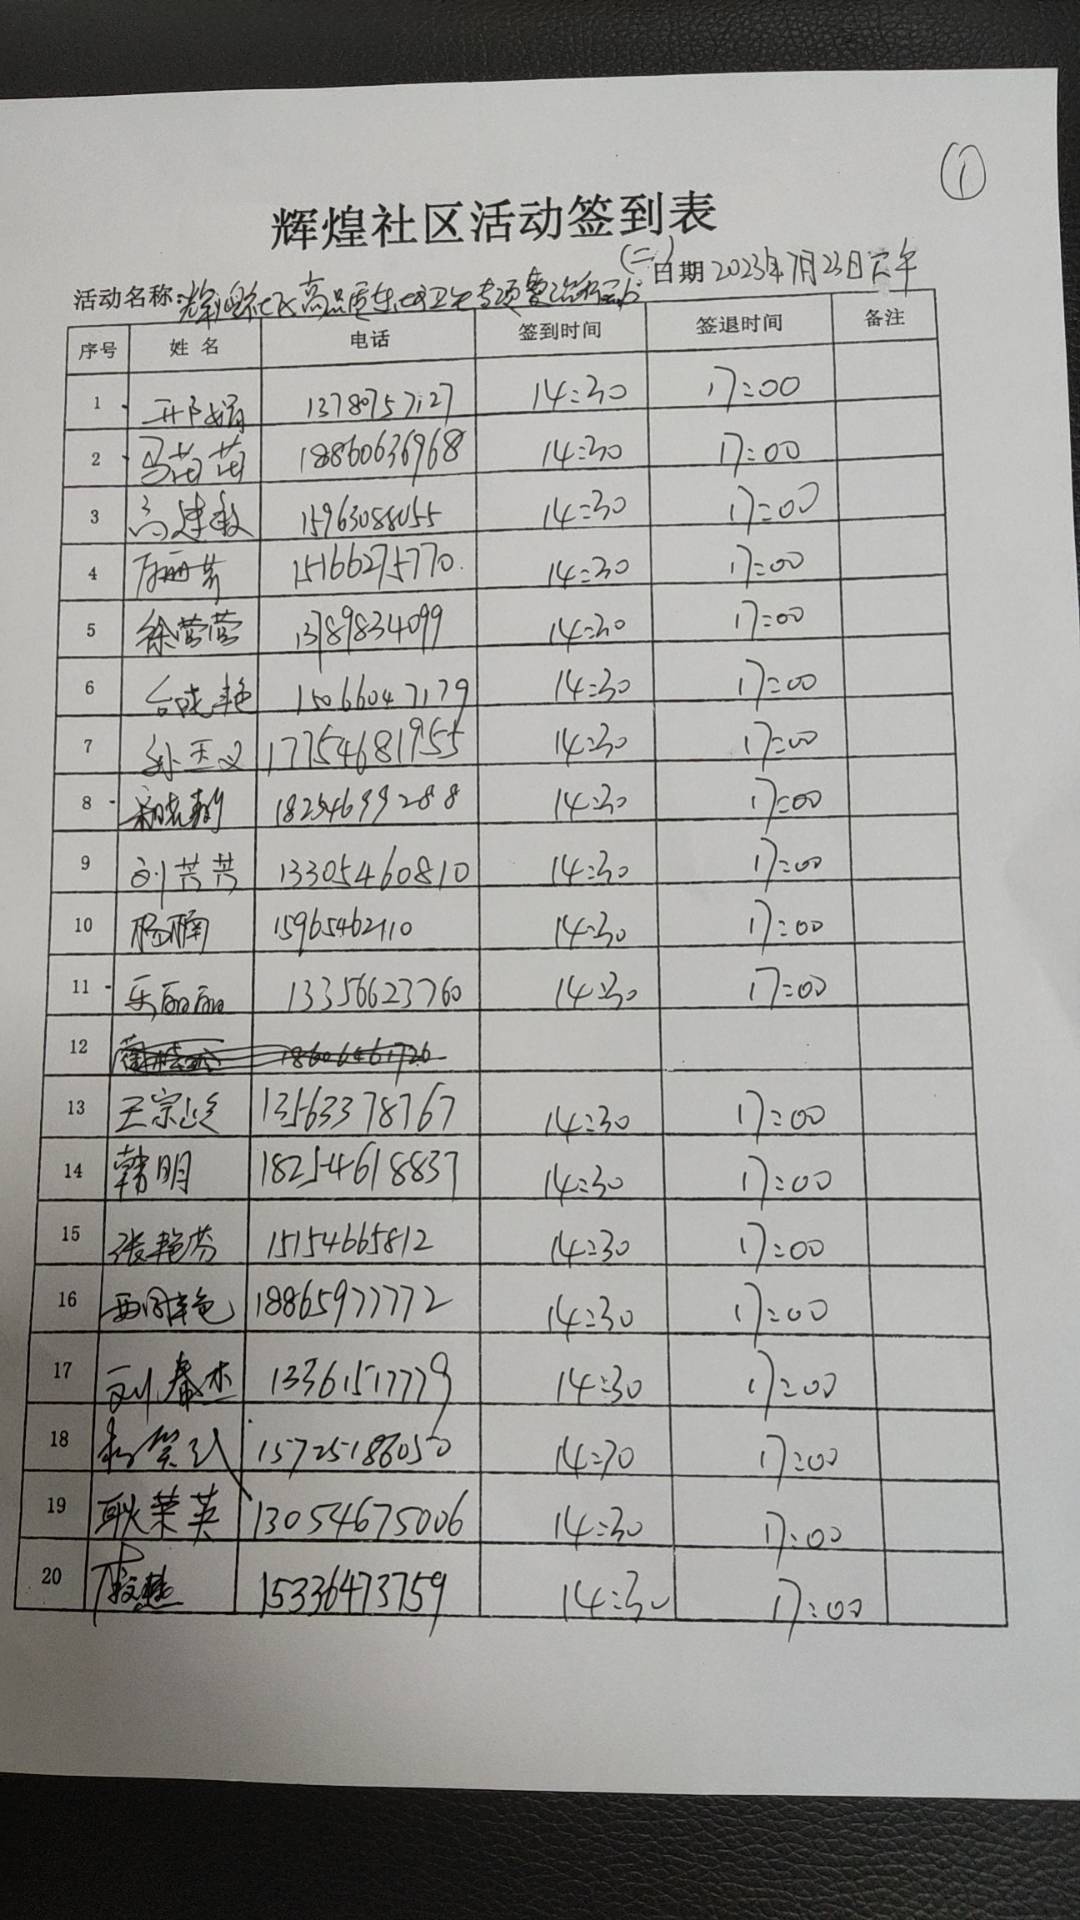 ①
辉煌社区活动签到表
(二)
活动名称: 辉煌社区高品质 卫生专项整治 日期 2023年7月23日下午
序号 姓名 电话 签到时间 签退时间 备注
1 邢娟 13780757127 14:30 17:00
2 马茜茜 18860636968 14:30 17:00
3 高建敏 15963088055 14:30 17:00
4 15166275770 14:30 17:00
5 徐莹莹 13789834099 14:30 17:00
6 台晓艳 15066047179 14:30 17:00
7 孙玉义 17754681955 14:30 17:00
8 18254699288 14:30 17:00
9 刘芸芸 13305460810 14:30 17:00
10 杨楠 15965462110 14:30 17:00
11 乐丽丽 13356623760 14:30 17:00
12 18606461726
13 王宗 13563378767 14:30 17:00
14 韩明 18254618837 14:30 17:00
15 张艳芬 15154665812 14:30 17:00
16 18865977772 14:30 17:00
17 刘春杰 13361517779 14:30 17:00
18 15725186050 14:30 17:00
19 耿荣英 13054675006 14:30 17:00
20 15336473759 14:30 17:00